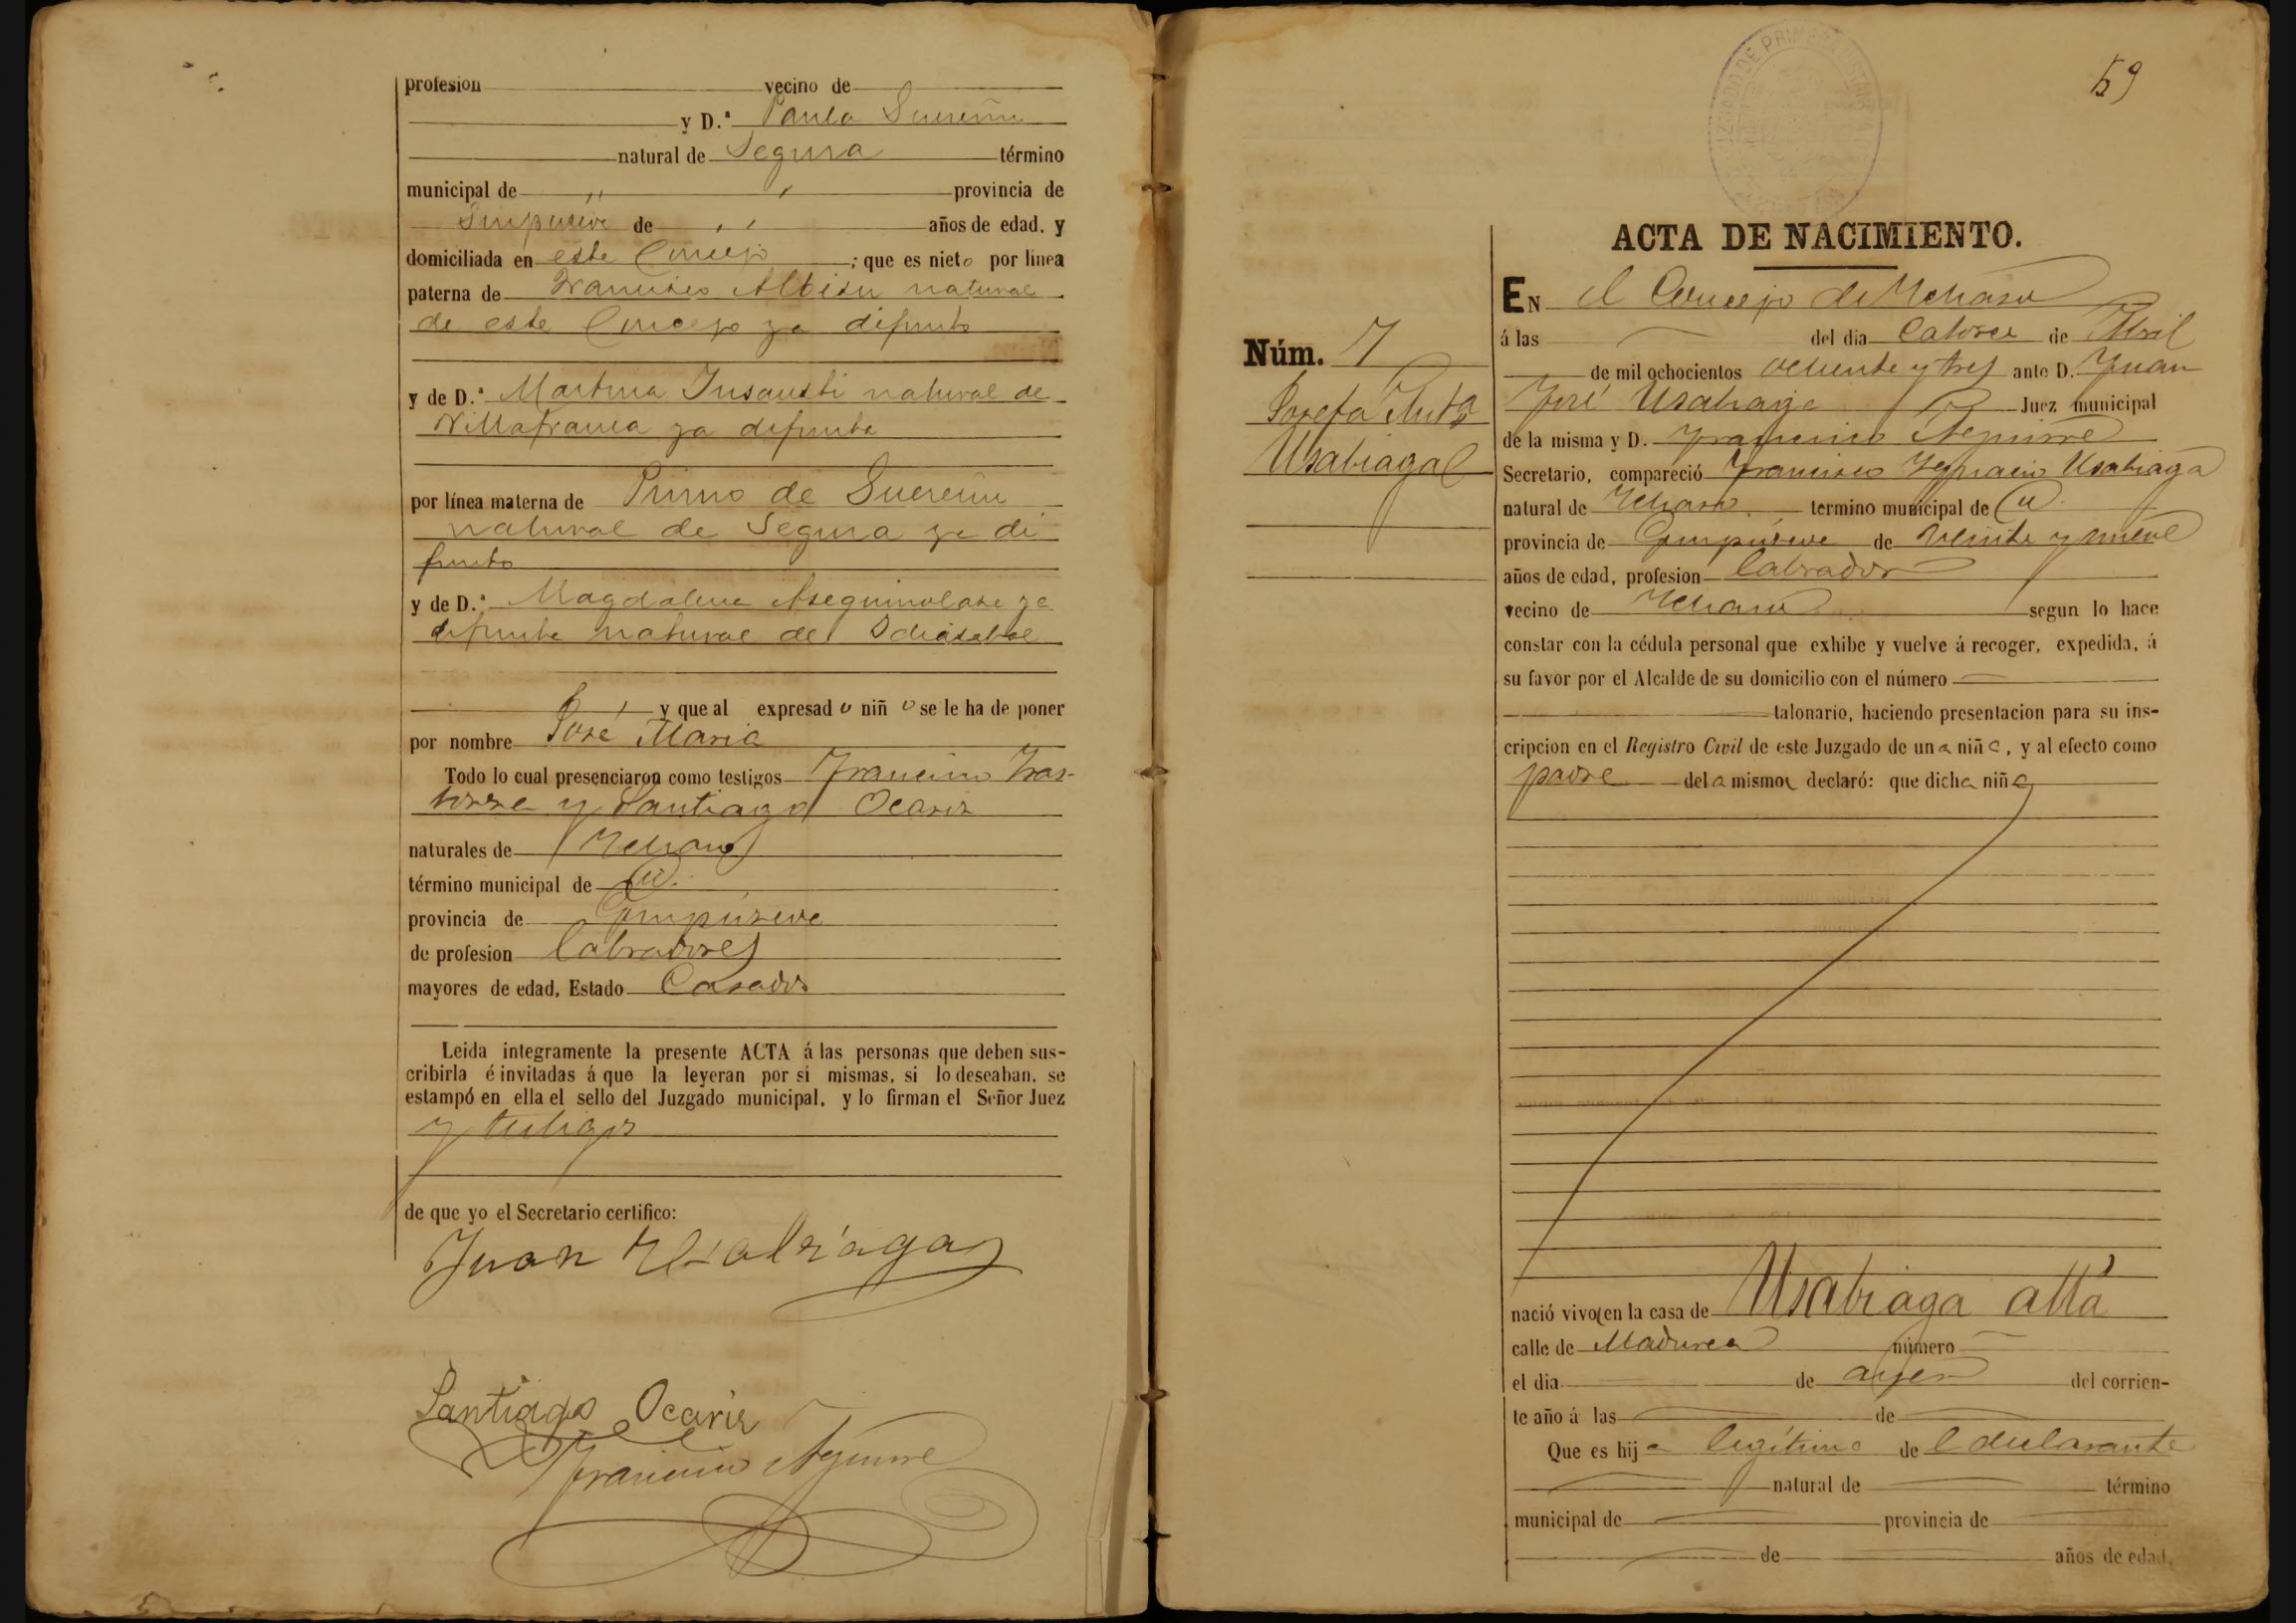 profesion vecino de
y D.ª Paula Suereña
natural de Segura término
municipal de " " provincia de
Guipuzcoa de " " años de edad, y
domiciliada en este Concejo ; que es nieto por línea
paterna de Francisco Albisu natural
de este Concejo ya difunto
y de D.ª Martina Insausti natural de
Villafranca ya difunta
por línea materna de Primo de
natural de Segura ya di
funto
y de D.ª Magdalena Aseguinolaza ya
difunta natural de Idiazabal
y que al expresado niño se le ha de poner
por nombre José Maria
Todo lo cual presenciaron como testigos Francisco Iras-
torza y Santiago Ocariz
naturales de Ichaso
término municipal de id.
provincia de Guipúzcoa
de profesion labradores
mayores de edad, Estado Casados
Leida integramente la presente ACTA á las personas que deben sus-
cribirla é invitadas á que la leyeran por si mismas, si lo deseaban, se
estampó en ella el sello del Juzgado municipal, y lo firman el Señor Juez
y testigos
de que yo el Secretario certifico:
Juan Usabiaga
Santiago Ocariz
Francisco Aguirre
59
JUZGADO DE PRIMERA INSTANCIA
ACTA DE NACIMIENTO.
Núm. 7
Josefa Anta
Usabiaga
EN el Concejo de Ichaso
á las del dia Catorce de Abril
de mil ochocientos ochenta y tres ante D. Juan
José Usabiaga Juez municipal
de la misma y D. Francisco Aguirre
Secretario, compareció Francisco Ygnacio Usabiaga
natural de Ichaso termino municipal de id.
provincia de Guipúzcoa de veinte y nueve
años de edad, profesion labrador
vecino de Ichaso segun lo hace
constar con la cédula personal que exhibe y vuelve á recoger, expedida, á
su favor por el Alcalde de su domicilio con el número
talonario, haciendo presentacion para su ins-
cripcion en el Registro Civil de este Juzgado de una niña, y al efecto como
padre de la misma declaró: que dicha niña
nació viva en la casa de Usabiaga alta
calle de Madurea número
el dia de ayer del corrien-
te año á las de
Que es hija legítima de l declarante
natural de término
municipal de provincia de
de años de edad,